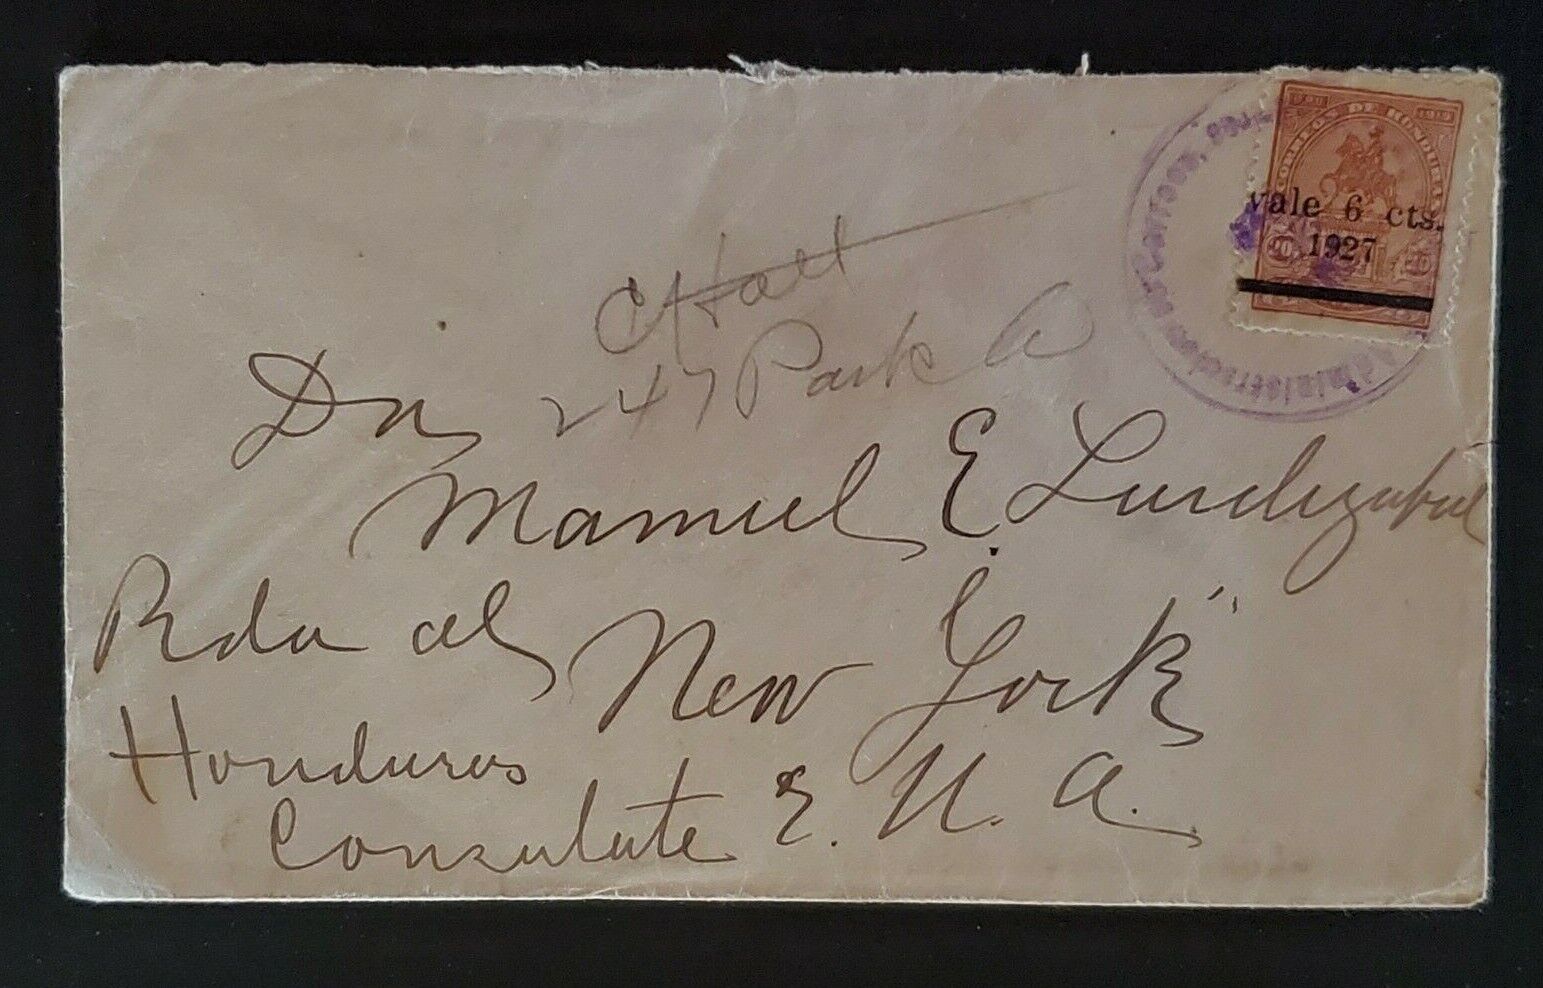 CORREOS DE HONDURAS
1919
vale 6 cts.
1927
Administracion de Correos.
247 Park A
Dn
Manuel E. Lardizabal
Rda al New York
Honduras
Consulate E. U. A.